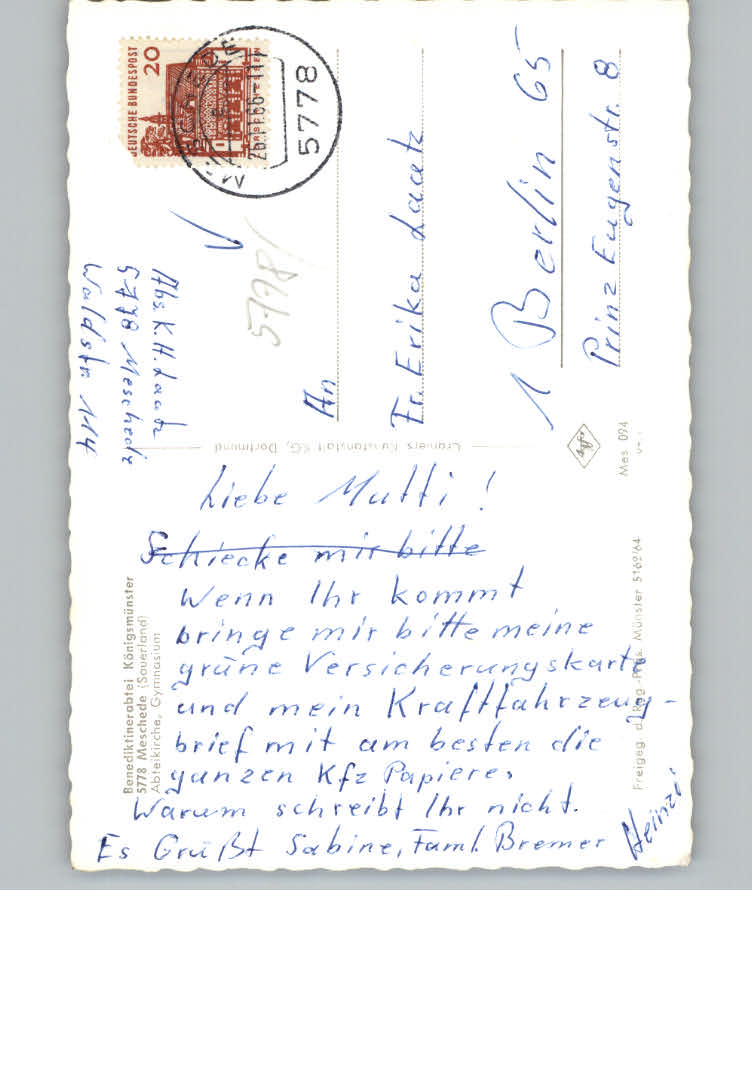 DEUTSCHE BUNDESPOST
20
MESCHEDE
26.1.66-11
5778
Abs. K. H. Laatz
5778 Meschede
Waldstr. 114
5778
An
Fr. Erika Laatz
1 Berlin 65
Prinz Eugenstr. 8
Cramers Kunstanstalt KG, Dortmund
Agfa
Mes 094
Benediktinerabtei Königsmünster
5778 Meschede (Sauerland)
Abteikirche, Gymnasium
Freigeg. d. Reg.-Präs. Münster 5162/64
Liebe Mutti!
Schiecke mir bitte
Wenn Ihr kommt
bringe mir bitte meine
grüne Versicherungskarte
und mein Kraftfahrzeug-
brief mit am besten die
ganzen Kfz Papiere,
Warum schreibt Ihr nicht.
Es Grüßt Sabine, Faml. Bremer
Heinzi